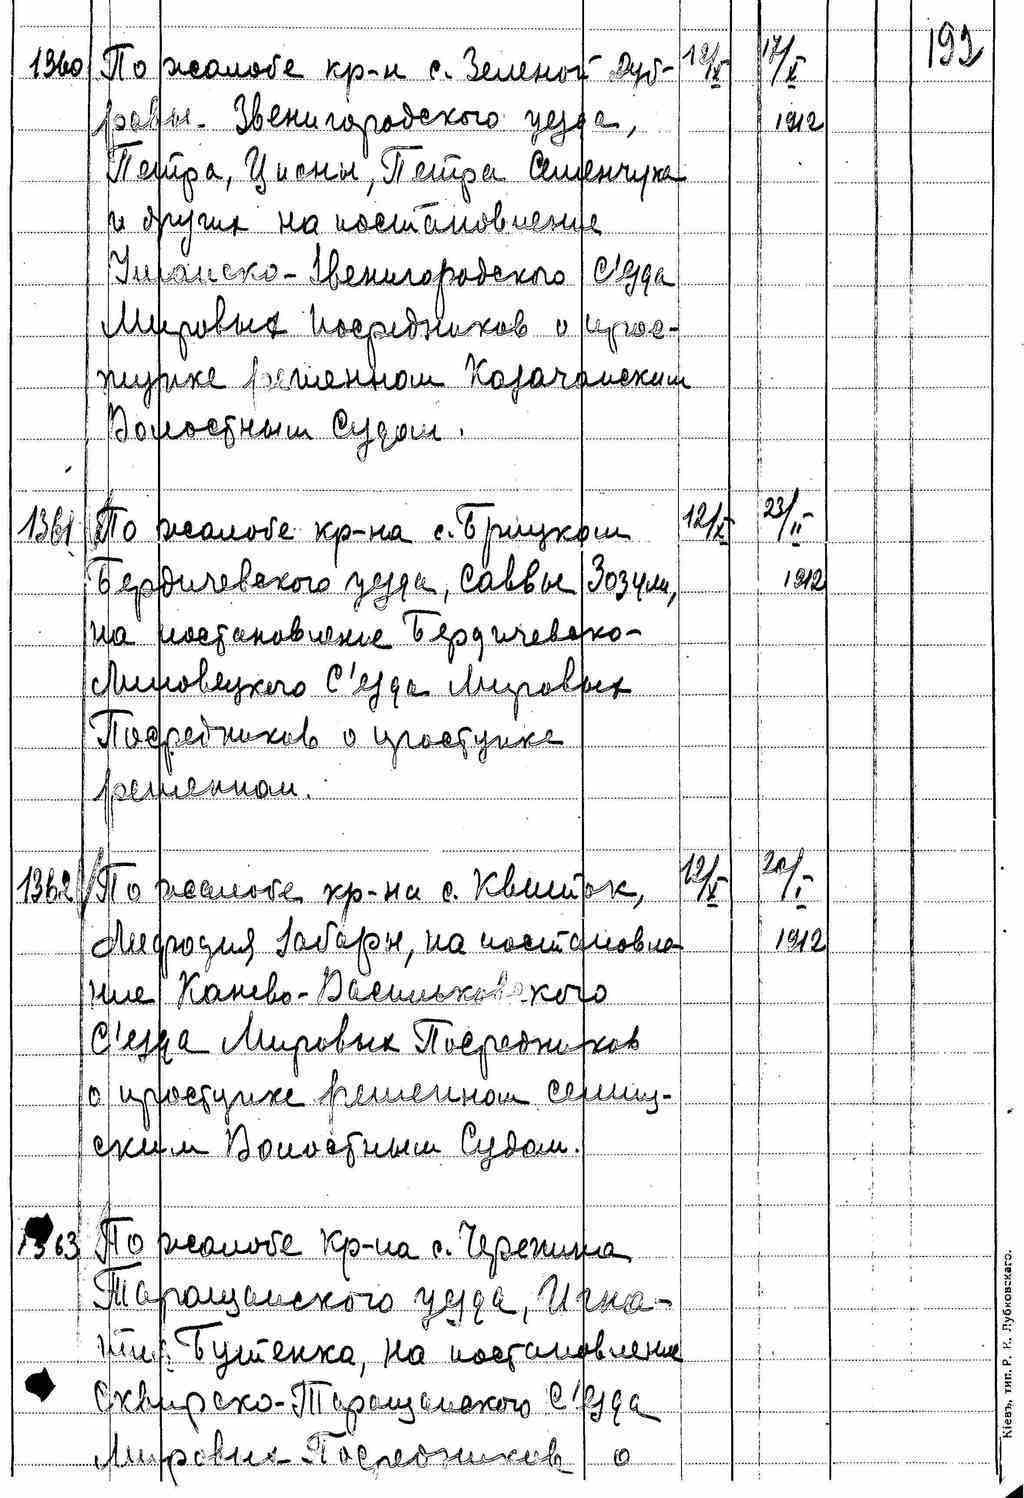 192
1360 По жалобе кр-н с. Зеленой Дуб- 12/X 17/X
равы Звенигородского уезда, 1912
Петра, Ционы, Петра Семенчука
и других на постановление
Уманско-Звенигородского С'езда
Мировых Посредников о прос-
тупке решенном Казачанским
Волостным Судом.
1361 По жалобе кр-на с. Брицком 12/X 23/II
Бердичевского уезда, Саввы Зозули, 1912
на постановление Бердичевско-
Липовецкого С'езда Мировых
Посредников о проступке
решенном.
1362 По жалобе кр-на с. Квиток, 12/X 20/I
Мефодия Забары, на постановле- 1912
ние Канево-Васильковского
С'езда Мировых Посредников
о проступке решенном
ским Волостным Судом.
1363 По жалобе кр-на с. Черепина
Таращанского уезда, Игна-
тия Бутенка, на постановление
Сквирско-Таращанского С'езда
Мировых Посредников о
Кіевъ, тип. Р. К. Лубковскаго.